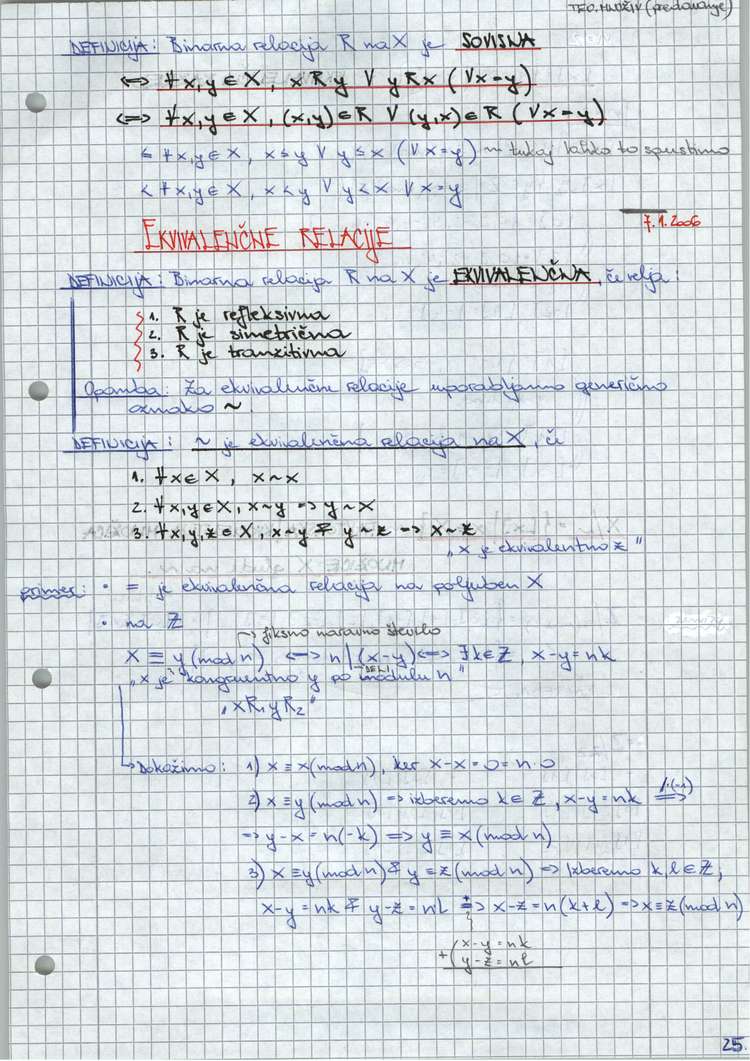 TEO. MNOŽIV (predavanje)
DEFINICIJA: Binarna relacija R na X je SOVISNA
⇔ ∀x,y ∈ X, x R y ∨ y R x (∨ x = y)
⇔ ∀x,y ∈ X, (x,y) ∈ R ∨ (y,x) ∈ R (∨ x = y)
≤ ∀x,y ∈ X, x ≤ y ∨ y ≤ x (∨ x = y) ~ tukaj lahko to spustimo
< ∀x,y ∈ X, x < y ∨ y < x ∨ x = y
7.1.2006
EKVIVALENČNE RELACIJE
DEFINICIJA: Binarna relacija R na X je EKVIVALENČNA, če velja:
1. R je refleksivna
2. R je simetrična
3. R je tranzitivna
Opomba: Za ekvivalenčne relacije uporabljamo generično
oznako ~
DEFINICIJA: ~ je ekvivalenčna relacija na X, če
1. ∀x ∈ X, x ~ x
2. ∀x,y ∈ X, x ~ y ⇒ y ~ x
3. ∀x,y,z ∈ X, x ~ y & y ~ z ⇒ x ~ z
"x je ekvivalentno z"
primer: • = je ekvivalenčna relacija na poljuben X
• na Z
→ fiksno naravno število
X ≡ y (mod n) ⇔ n | (x-y) ⇔ ∃k ∈ Z, x-y = nk
DELI
"x je kongruentno y po modulu n"
"x R₁ y R₂"
Dokažimo: 1) x ≡ x (mod n), ker x-x = 0 = n·0
2) x ≡ y (mod n) ⇒ izberemo k ∈ Z, x-y = nk /·(-1) ⇒
⇒ y-x = n(-k) ⇒ y ≡ x (mod n)
3) x ≡ y (mod n) & y ≡ z (mod n) ⇒ Izberemo k, l ∈ Z,
x-y = nk & y-z = nl ⇒ x-z = n(k+l) ⇒ x ≡ z (mod n)
+ ( x-y = nk
y-z = nl
25.